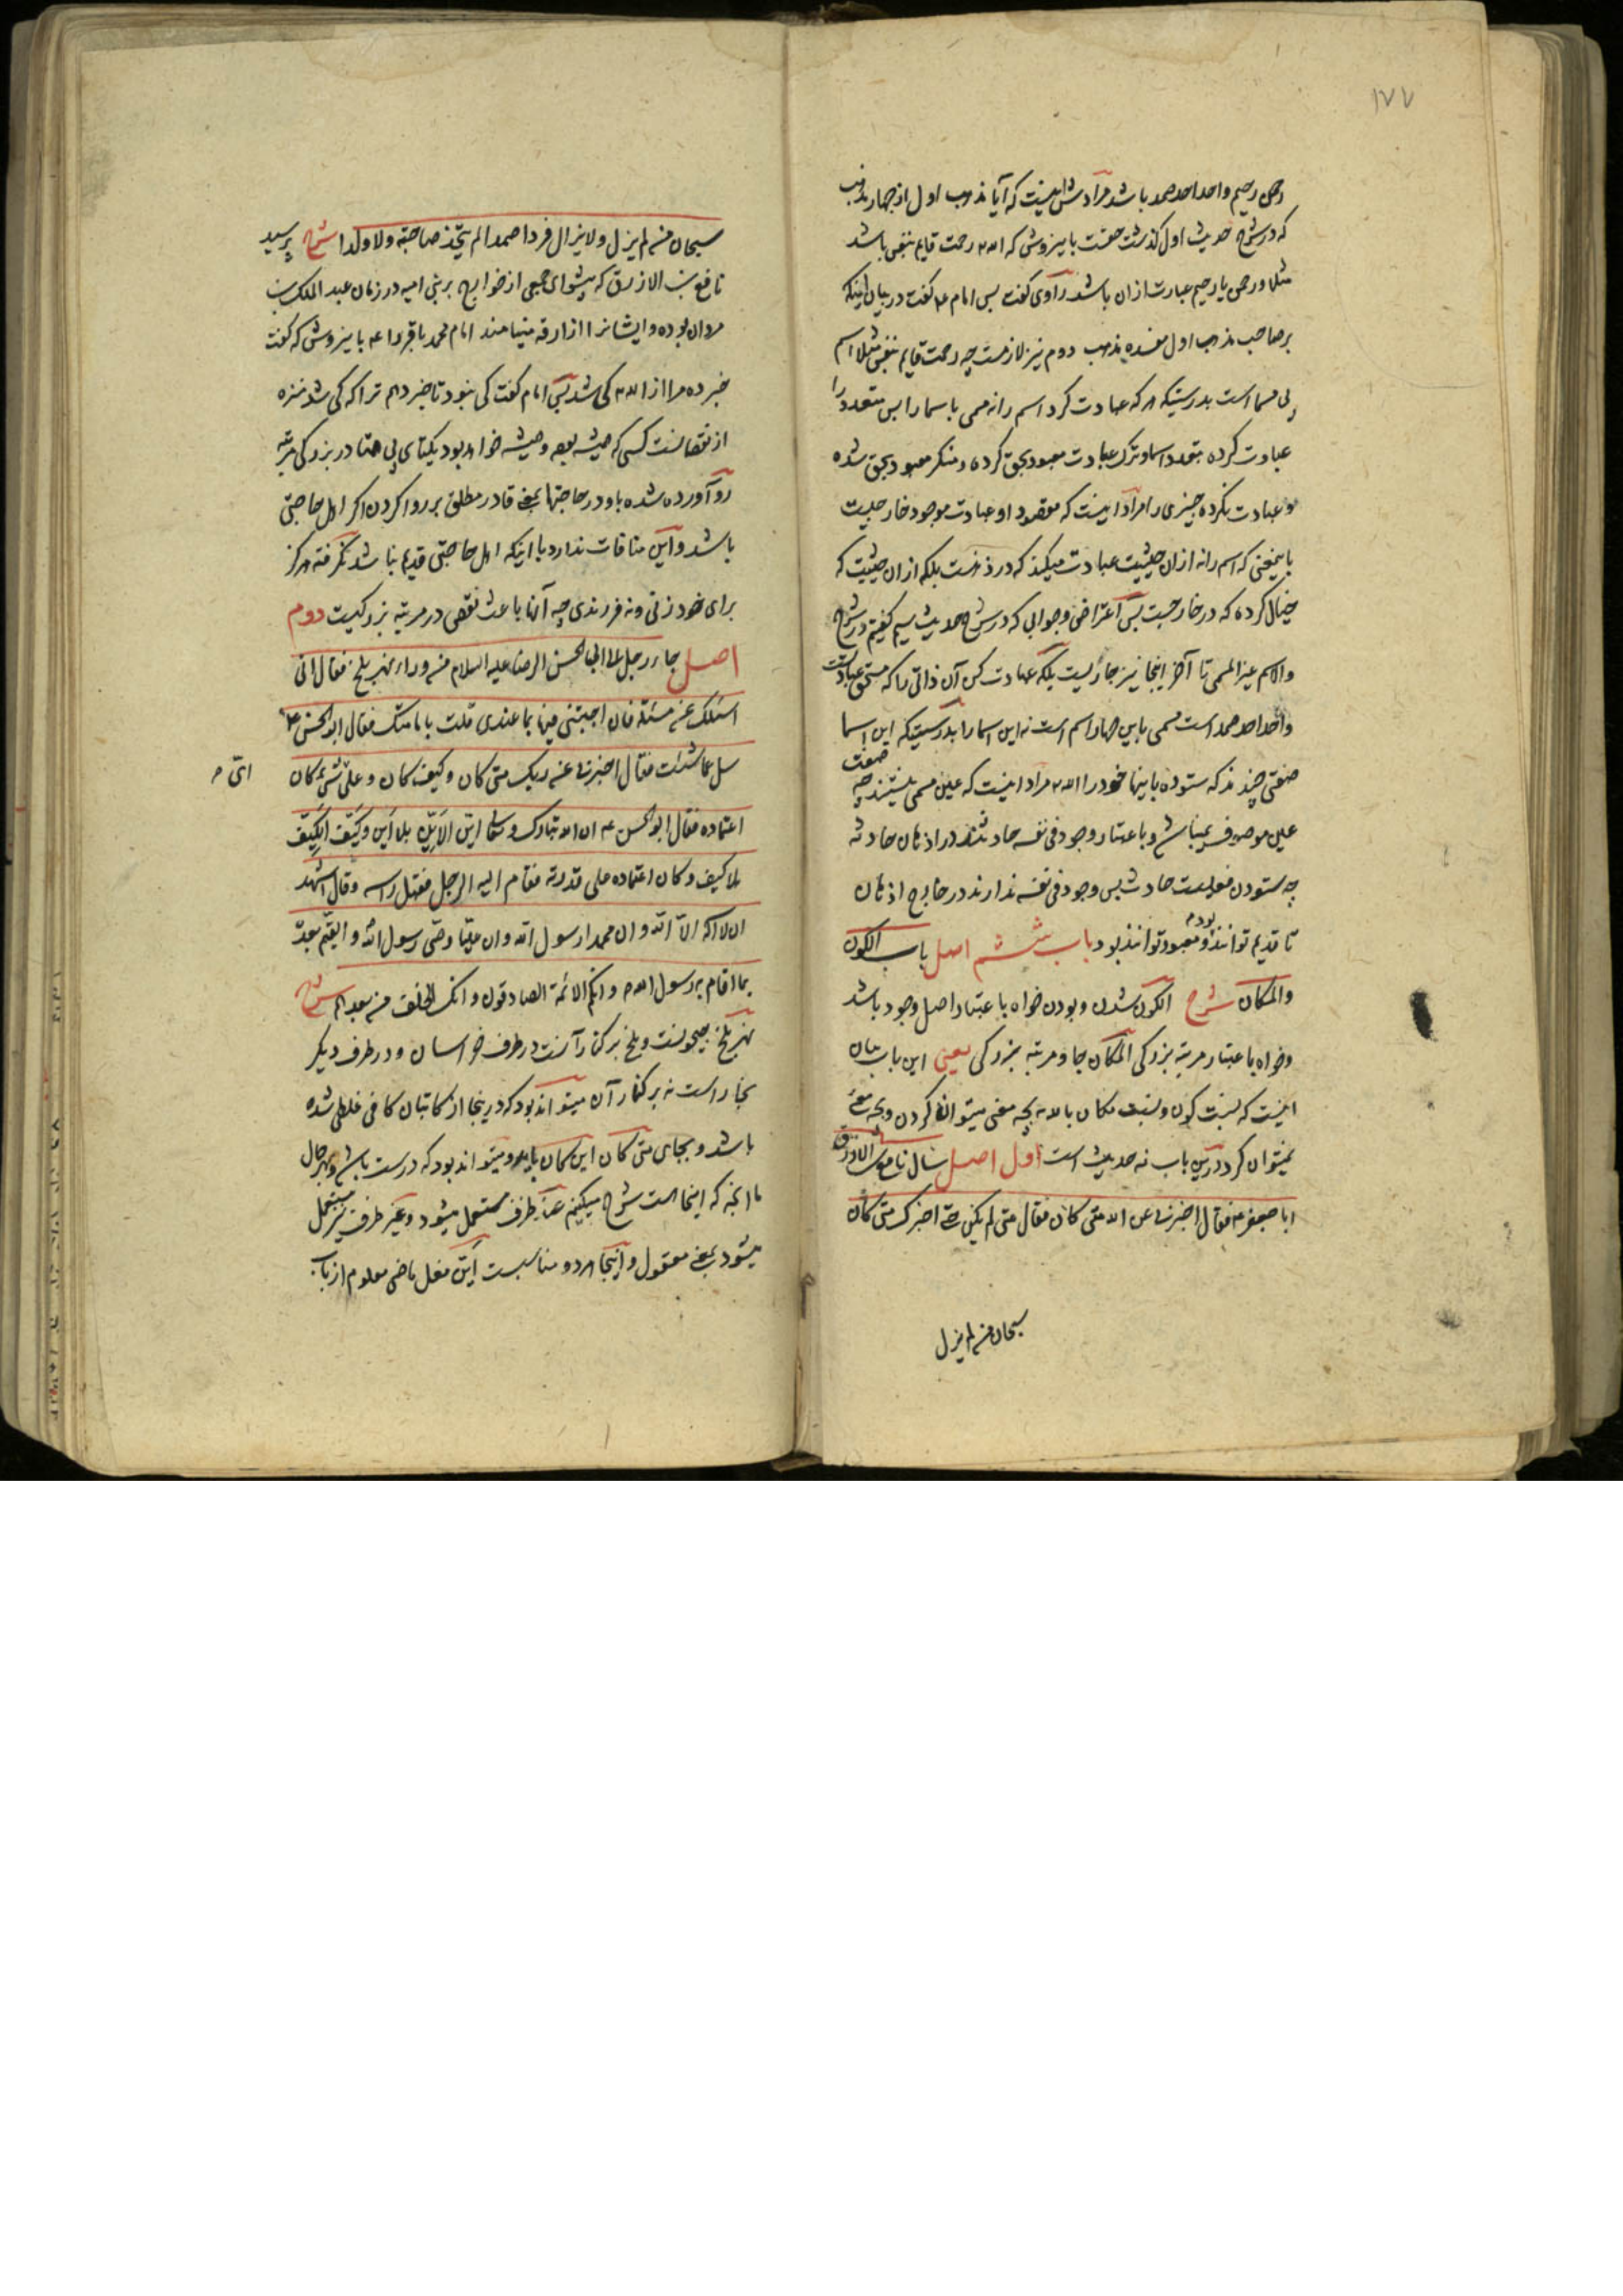 ۱۷۷
رحمن رحیم واحد احد صمد باشد مرادش اینست که آیا مذهب اول از چهار مذهب
که در شرح حدیث اول گذشت حقست باینروش که الله رحمت قایم بنفس باشد
مثلا و رحمن یا رحیم عبارت ازان باشد راوی گفت پس امام ع گفت در بیان اینکه
بر صاحب مذهب اول مفسده مذهب دوم نیز لازمست چه رحمت قایم بنفس مثلا اسم
بی مسما است بدرستیکه هر که عبادت کرد اسم را نه مسمی باسما را پس متعدد را
عبادت کرده بتعدد اسما و ترک عبادت معبود بحق کرده و منکر معبود بحق شده
و عبادت نکرده چیزی را مراد اینست که مقصود او عبادت موجود خارجیست
باینمعنی که اسم را نه ازان حیثیت عبادت میکند که در ذهنست بلکه ازان حیثیت که
خیال کرده که در خارجست پس اعتراض و جوابی که در شرح حدیث سیم گفتیم در شرح
والاسم غیر المسمی تا آخر اینجا نیز جاریست بلکه عبادت کن آن ذاتی را که مستحق عبادتست
واحد احد صمد است مسمی باین چهار اسم است نه این اسما را بدرستیکه این اسما
صفتی چند که ستوده باینها خود را الله مراد اینست که عین مسمی نیستند چه صفت
عین موصوف نمیباشد و باعتبار وجود فی نفسه حادثند در اذهان حادثه
چه ستودن فعلیست حادث پس وجود فی نفسه ندارند در خارج اذهان
تا قدیم توانند بود و معبود توانند بود باب ششم اصل باب الکون
والمکان شرح الکون شدن و بودن خواه باعتبار اصل وجود باشد
و خواه باعتبار مرتبه بزرکی المکان جا و مرتبه بزرکی یعنی این باب بیان
اینست که نسبت کون و نسبت مکان بالله بچه معنی میتوان کردن و بچه معنی
نمیتوان کرد درین باب نه حدیث است اول اصل سال نافع بن الازرق
ابا جعفر ع فقال اخبرنی عن الله متی کان فقال متی لم یکن حتی اخبرک متی کان
سبحان من لم یزل
سبحان من لم یزل ولا یزال فردا صمدا لم یتخذ صاحبة ولا ولدا شرح پرسید
نافع بن الازرق که پیشوای جمعی از خوارج بر بنی امیه در زمان عبد الملک بن
مروان بوده و ایشانرا ازارقه مینامند امام محمد باقر را ع باینروش که گفت
خبر ده مرا از الله کی شد پس امام گفت کی نبود تا خبر دهم ترا که کی شد منزه
از نقصانست کسی که همیشه بوده و همیشه خواهد بود یکتای بی همتا در بزرکی مرتبه
رو آورده شده باو در حاجتها بمعنی قادر مطلق بر روا کردن اکر اهل حاجتی
باشد و این منافات ندارد با اینکه اهل حاجتی قدیم نباشد نکرفته هرکز
برای خود زنی و نه فرزندی چه آنها باعث نقص در مرتبه بزرکیست دوم
اصل جاء رجل الی ابی الحسن الرضا علیه السلام من وراء نهر بلخ فقال انی
اسئلک عن مسئلة فان اجبتنی فیها بما عندی قلت بامامتک فقال ابو الحسن ع
سل عما شئت فقال اخبرنی عن ربک متی کان و کیف کان و علی ای شئ کان
ائی م
اعتماده فقال ابو الحسن ع ان الله تبارک و تعالی این الاین بلا این و کیف الکیف
بلا کیف و کان اعتماده علی قدرته فقام الیه الرجل فقبل راسه و قال اشهد
ان لا اله الا الله و ان محمدا رسول الله و ان علیا وصی رسول الله و القیم بعده
بما اقام به رسول الله و انکم الائمة الصادقون و انک الخلف من بعدهم شرح
نهر بلخ جیحونست و بلخ بر کنار آنست در طرف خراسان و در طرف دیکر
بخارا است نه بر کنار آن میتواند بود که درینجا از کاتبان کافی غلطی شده
باشد و بجای متی کان این کان باید و میتواند بود که درست باشد و بهر حال
ما انچه که اینجا است شرح میکنیم عند ظرف مستعمل میشود و غیر ظرف نیز مستعمل
میشود بمعنی معقول و اینجا هر دو مناسبست این فعل ماضی معلوم از باب